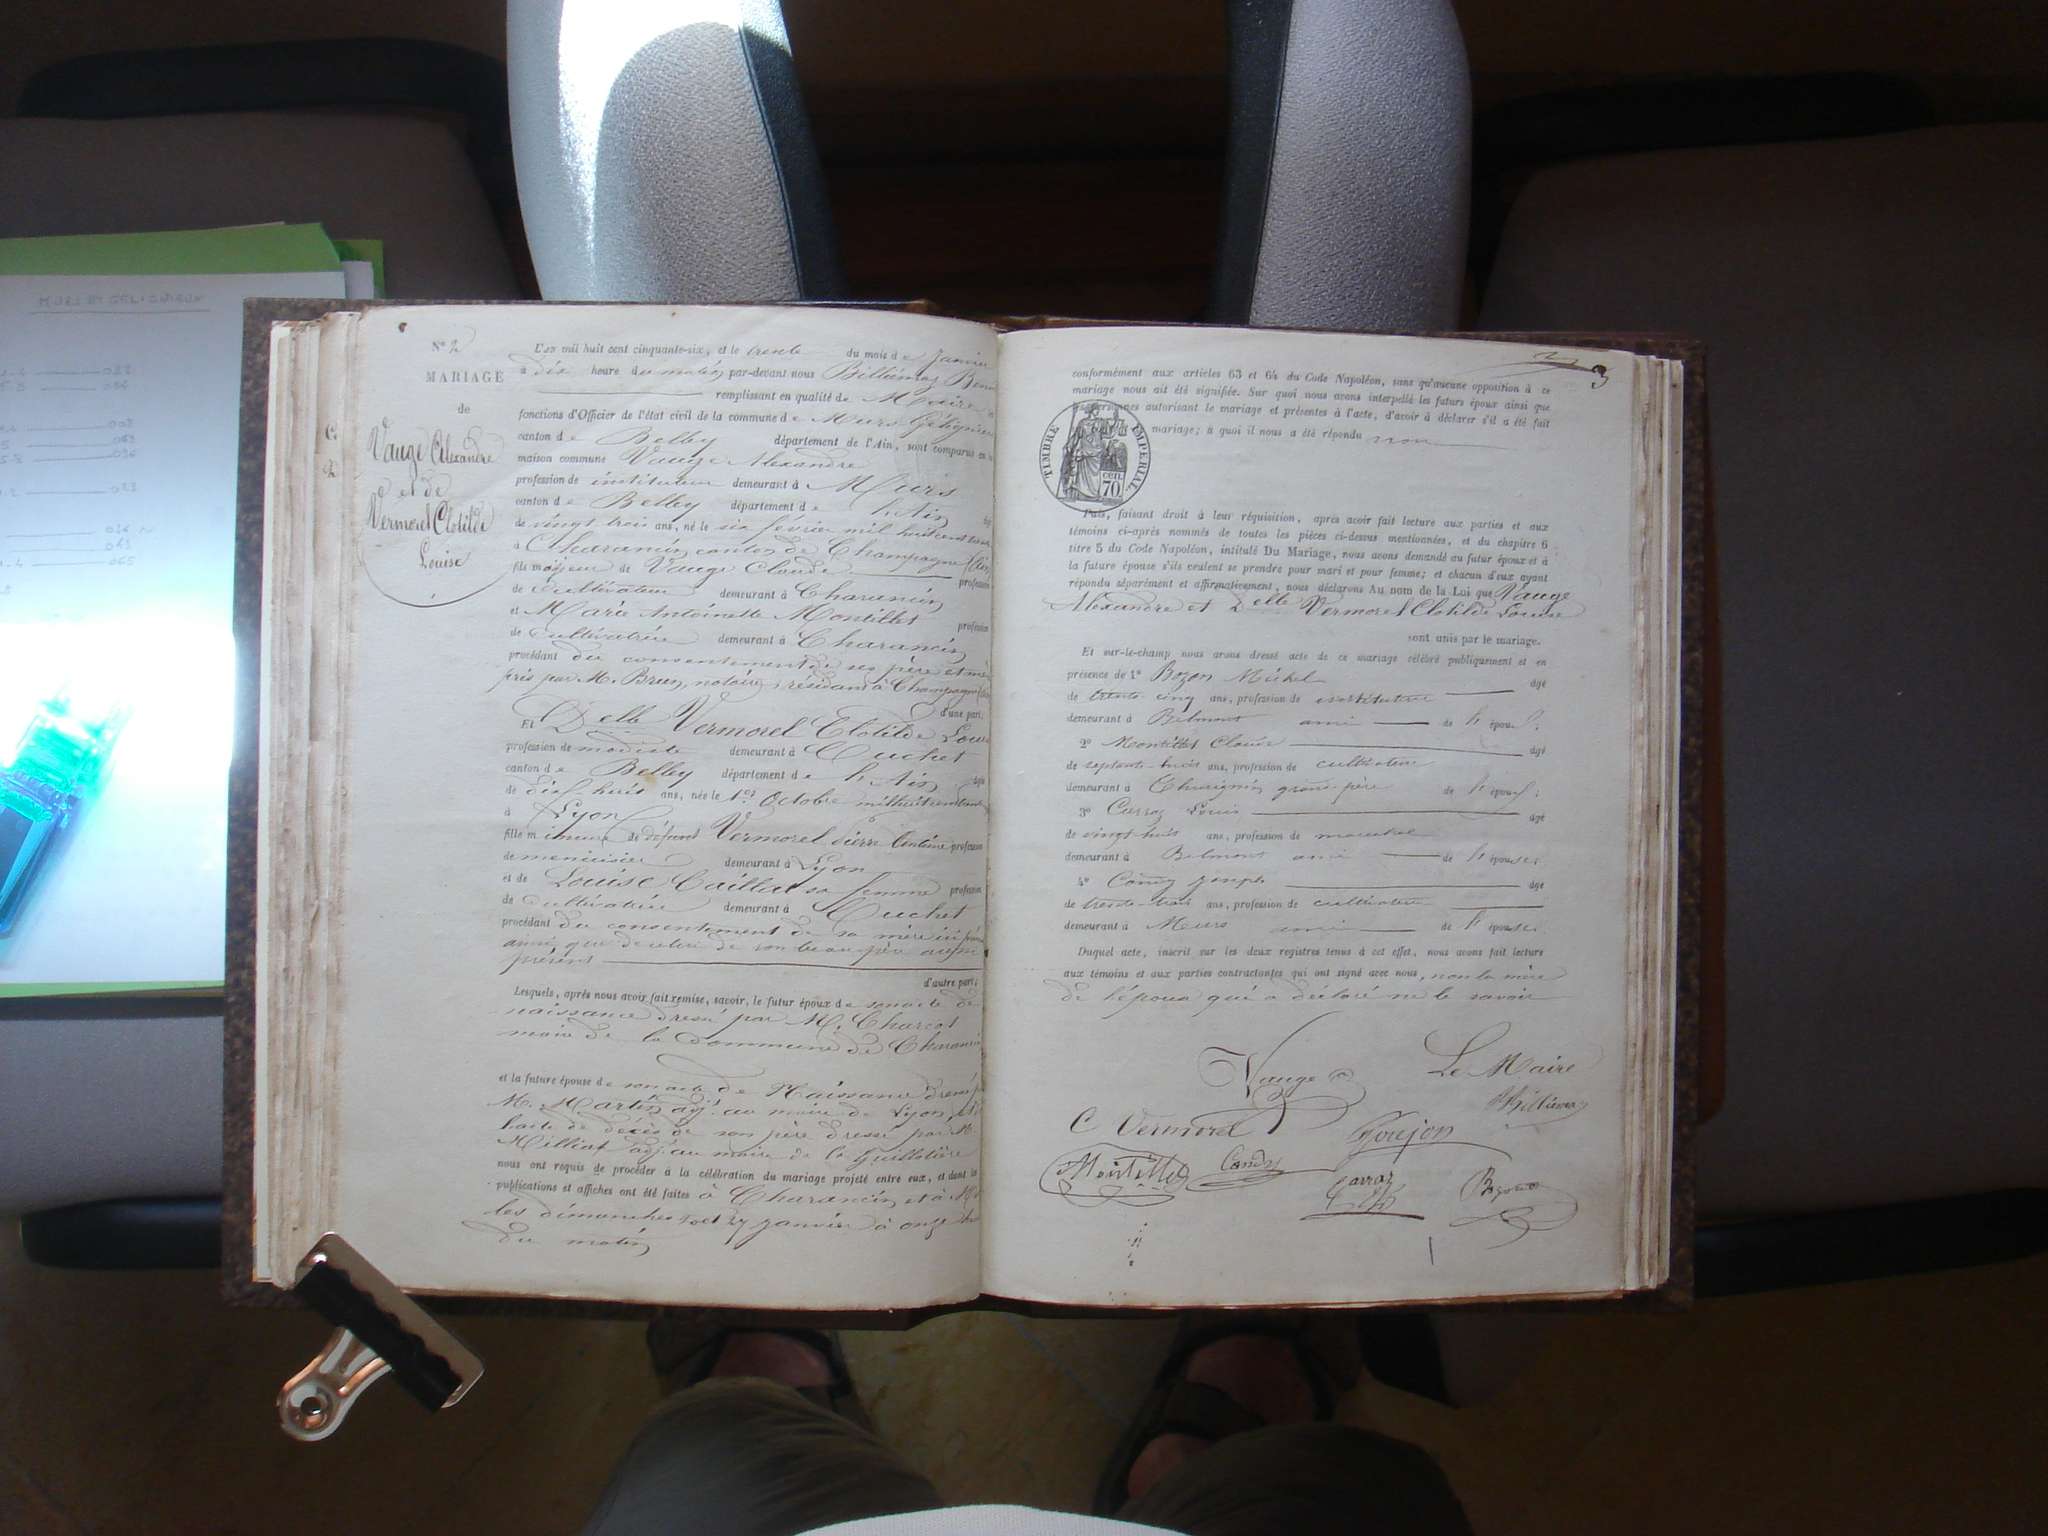 N° 2
MARIAGE
de
Vauge Alexandre
et de
Vermorel Clotilde
Louise
L'an mil huit cent cinquante-six, et le trente du mois de Janvier
à dix heure du matin par-devant nous Billiémaz
remplissant en qualité de Maire
fonctions d'Officier de l'état civil de la commune de Murs Gélignieux
canton de Belley département de l'Ain, sont comparus en
maison commune Vauge Alexandre
profession de instituteur demeurant à Murs
canton de Belley département de l'Ain
de vingt trois ans, né le six février mil huit cent
à Charancin canton de Champagne (Ain
fils majeur de Vauge Claude profession
de Cultivateur demeurant à Charancin
et Marie Antoinette Montillet profession
de Cultivatrice demeurant à Charancin
procédant du consentement de ses père et
pris par M. Brun, notaire, résidant à Champagne
d'une part.
Et Delle Vermorel Clotilde Louise
profession de modiste demeurant à Cuchet
canton de Belley département de l'Ain âgée
de dix huit ans, née le 1er Octobre mil huit
à Lyon
fille mineure de défunt Vermorel Pierre profession
de menuisier demeurant à Lyon
et de Louise Cailliat sa femme profession
de Cultivatrice demeurant à Cuchet
procédant du consentement de sa mère ici
ainsi que de celui de son beau-père aussi
présent
d'autre part;
Lesquels, après nous avoir fait remise, savoir, le futur époux de son acte de
naissance dressé par M. Charcot
maire de la Commune de Charancin
et la future épouse de son acte de Naissance dressé
M. Martin adj. au maire de Lyon et
l'acte de décès de son père dressé par M.
Milliat adj. au maire de la Guillotière
nous ont requis de procéder à la célébration du mariage projeté entre eux, et dont les
publications et affiches ont été faites à Charancin et à
les dimanches et 27 janvier à onze h
du matin
3
conformément aux articles 63 et 64 du Code Napoléon, sans qu'aucune opposition à ce
mariage nous ait été signifiée. Sur quoi nous avons interpellé les futurs époux ainsi que
autorisant le mariage et présentes à l'acte, d'avoir à déclarer s'il a été fait
mariage; à quoi il nous a été répondu non
TIMBRE IMPERIAL
cen.
70
Puis, faisant droit à leur réquisition, après avoir fait lecture aux parties et aux
témoins ci-après nommés de toutes les pièces ci-dessus mentionnées, et du chapitre 6
titre 5 du Code Napoléon, intitulé Du Mariage, nous avons demandé au futur époux et à
la future épouse s'ils veulent se prendre pour mari et pour femme; et chacun d'eux ayant
répondu séparément et affirmativement, nous déclarons Au nom de la Loi que Vauge
Alexandre et Delle Vermorel Clotilde Louise
sont unis par le mariage.
Et sur-le-champ nous avons dressé acte de ce mariage célébré publiquement et en
présence de 1° Bozon Michel âgé
de trente-cinq ans, profession de instituteur
demeurant à Belmont ami de l'époux;
2° Montillet Claude âgé
de septante-trois ans, profession de cultivateur
demeurant à grand-père de l'époux;
3° Carraz Louis âgé
de vingt-huit ans, profession de marechal
demeurant à Belmont ami de l'épouse.
4° Candy Joseph âgé
de trente-trois ans, profession de cultivateur
demeurant à Murs ami de l'épouse.
Duquel acte, inscrit sur les deux registres tenus à cet effet, nous avons fait lecture
aux témoins et aux parties contractantes qui ont signé avec nous, non la mère
de l'époux qui a déclaré ne le savoir
Vauge a
Le Maire
Billiémaz
C Vermorel
Goujon
Montillet
Candy
Carraz
Bozon